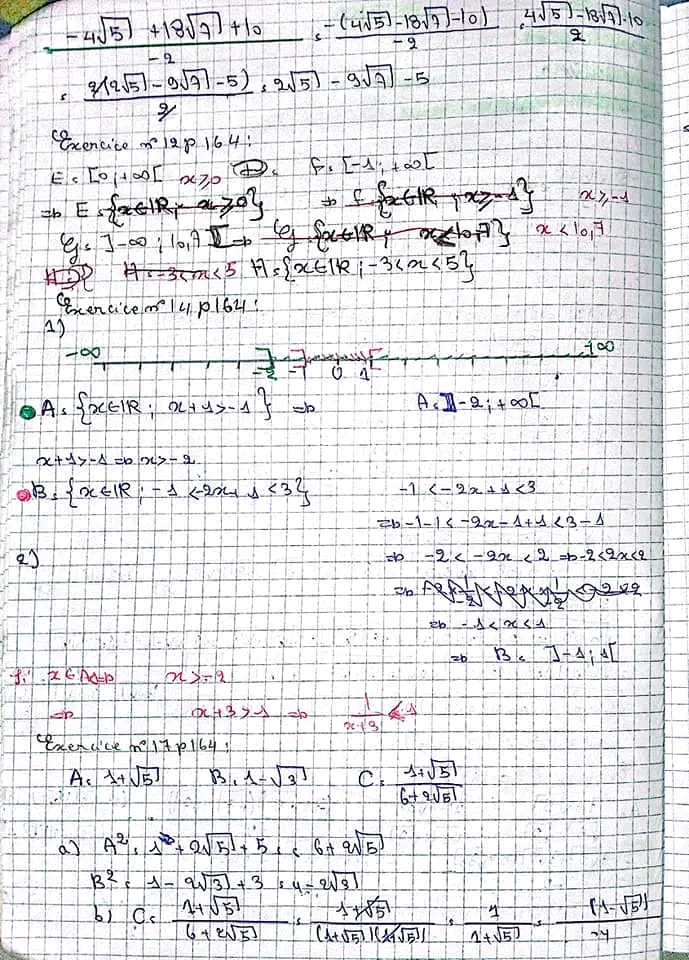 -4√5 + 18√7 + 10 / -2 = -(4√5 - 18√7 - 10) / -2 = 4√5 - 18√7 - 10 / 2
= 2(2√5 - 9√7 - 5) / 2 = 2√5 - 9√7 - 5
Exercice n° 12 p 164 :
E = [0 ; +∞[ x ≥ 0 F = [-1 ; +∞[
=> E = {x ∈ IR ; x ≥ 0} => F {x ∈ IR ; x ≥ -1} x ≥ -1
G = ]-∞ ; 10,7[ => G = {x ∈ IR ; x < 10,7} x < 10,7
H = -3 < x < 5 H = {x ∈ IR ; -3 < x < 5}
Exercice n° 14 p 164 :
1)
-∞ -2 -1 0 1 +∞
A = {x ∈ IR ; x + 1 > -1} => A = ]-2 ; +∞[
x + 1 > -1 => x > -2
B = {x ∈ IR ; -1 < -2x + 1 < 3} -1 < -2x + 1 < 3
=> -1 - 1 < -2x - 1 + 1 < 3 - 1
2) => -2 < -2x < 2 => -2 < 2x < 2
=> -1 < x < 1
=> B = ]-1 ; 1[
x ∈ A => x > -2
=> x + 3 > 1 => 1 / x + 3 < 1
Exercice n° 17 p 164 :
A = 1 + √5 B = 1 - √3 C = 1 + √5 / 6 + 2√5
a) A² = 1² + 2√5 + 5 = 6 + 2√5
B² = 1 - 2√3 + 3 = 4 - 2√3
b) C = 1 + √5 / 6 + 2√5 = 1 + √5 / (1 + √5)(1 + √5) = 1 / 1 + √5 = (1 - √5) / -4